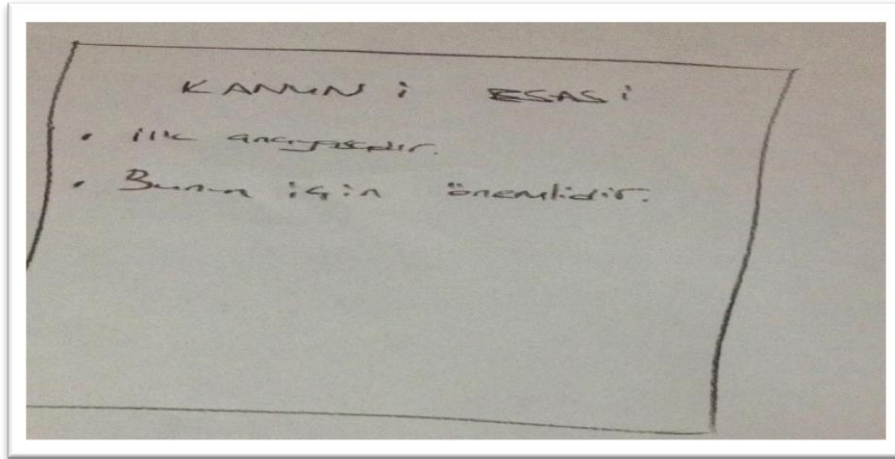 KANUN İ ESASİ
• ilk anayasadır.
• Bunun için önemlidir.